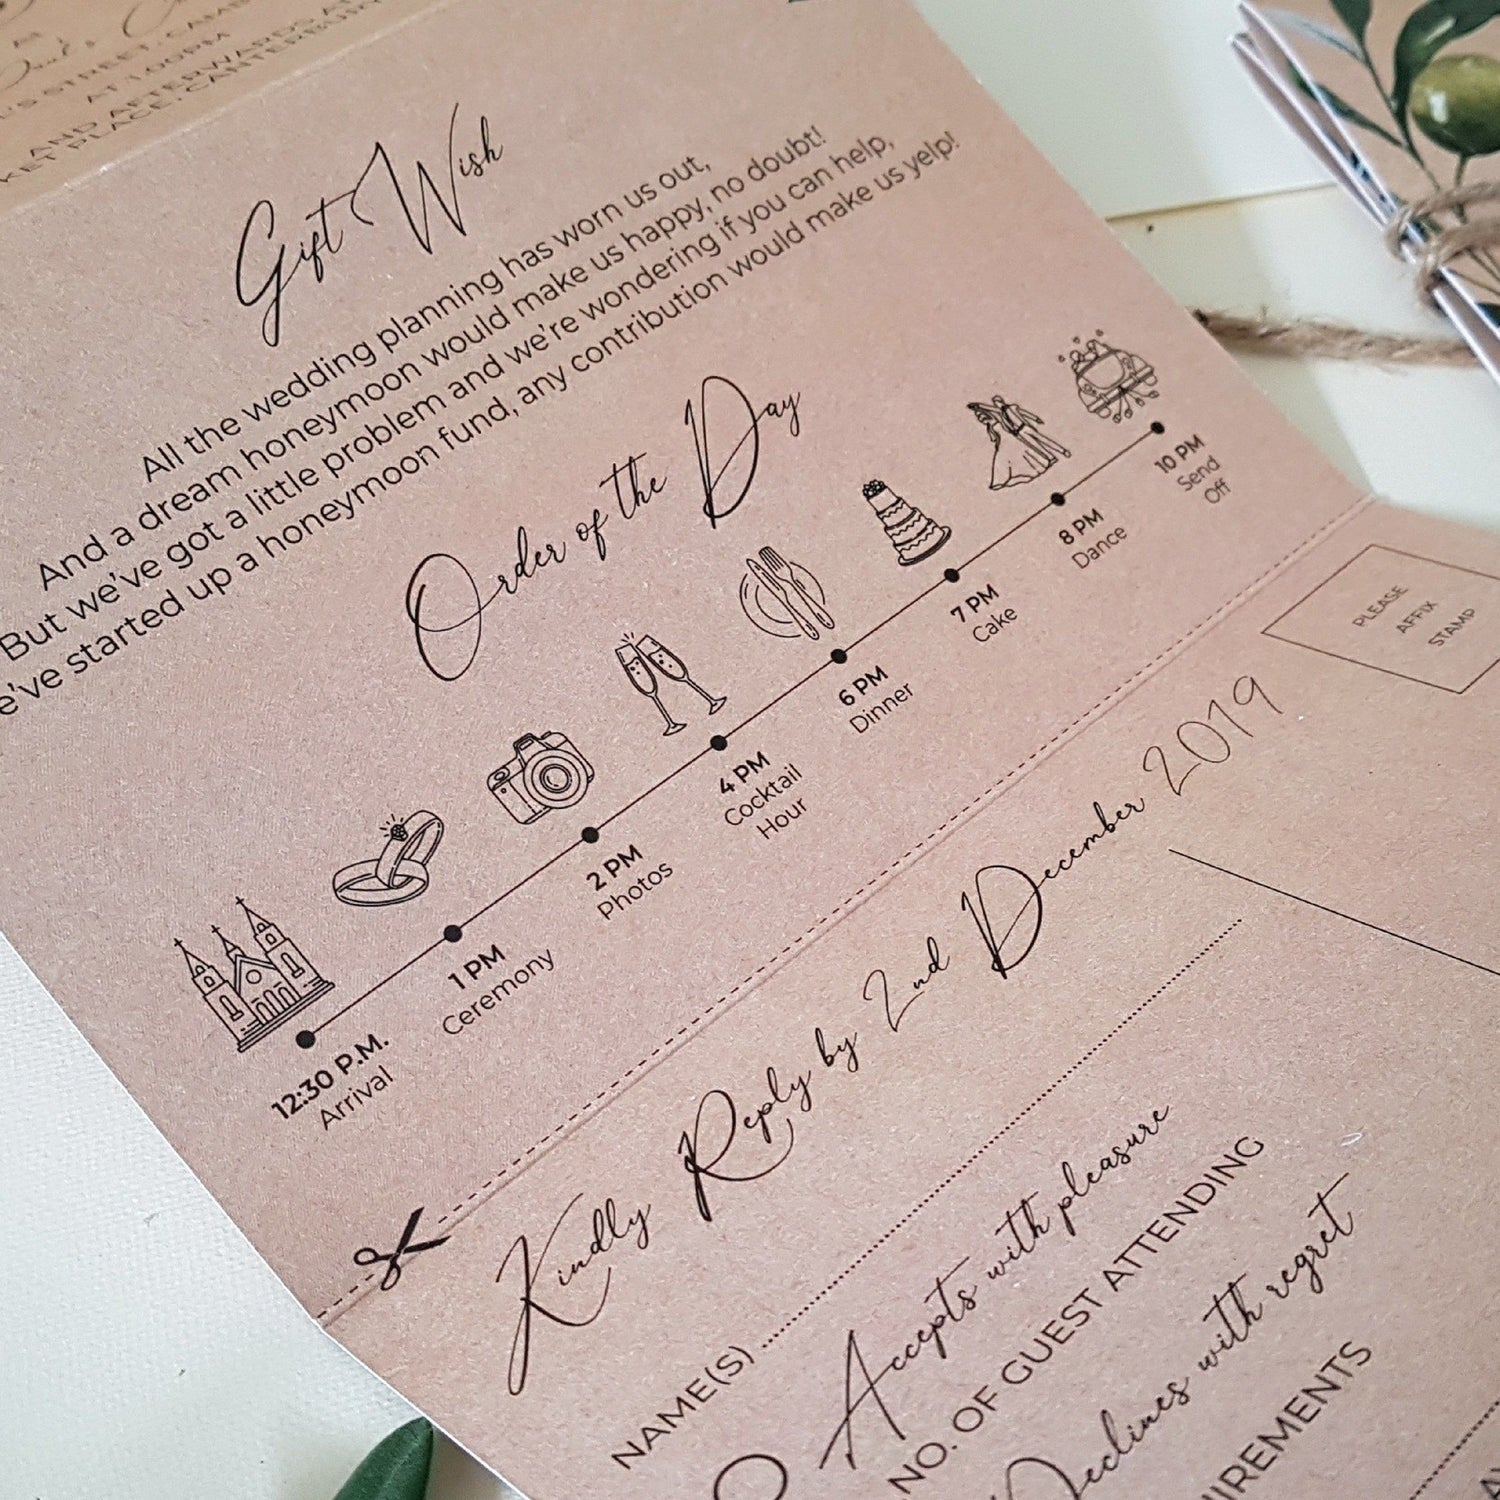 STREET,
AT 1.00PM
AND AFTERWARDS AT
KET PLACE, CANTERBURY
Gift Wish
All the wedding planning has worn us out,
And a dream honeymoon would make us happy, no doubt!
But we've got a little problem and we're wondering if you can help,
e've started up a honeymoon fund, any contribution would make us yelp!
Order of the Day
12:30 P.M.
Arrival
1 PM
Ceremony
2 PM
Photos
4 PM
Cocktail
Hour
6 PM
Dinner
7 PM
Cake
8 PM
Dance
10 PM
Send
Off
PLEASE
AFFIX
STAMP
Kindly Reply by 2nd December 2019
NAME(S)
Accepts with pleasure
NO. OF GUEST ATTENDING
Declines with regret
IREMENTS